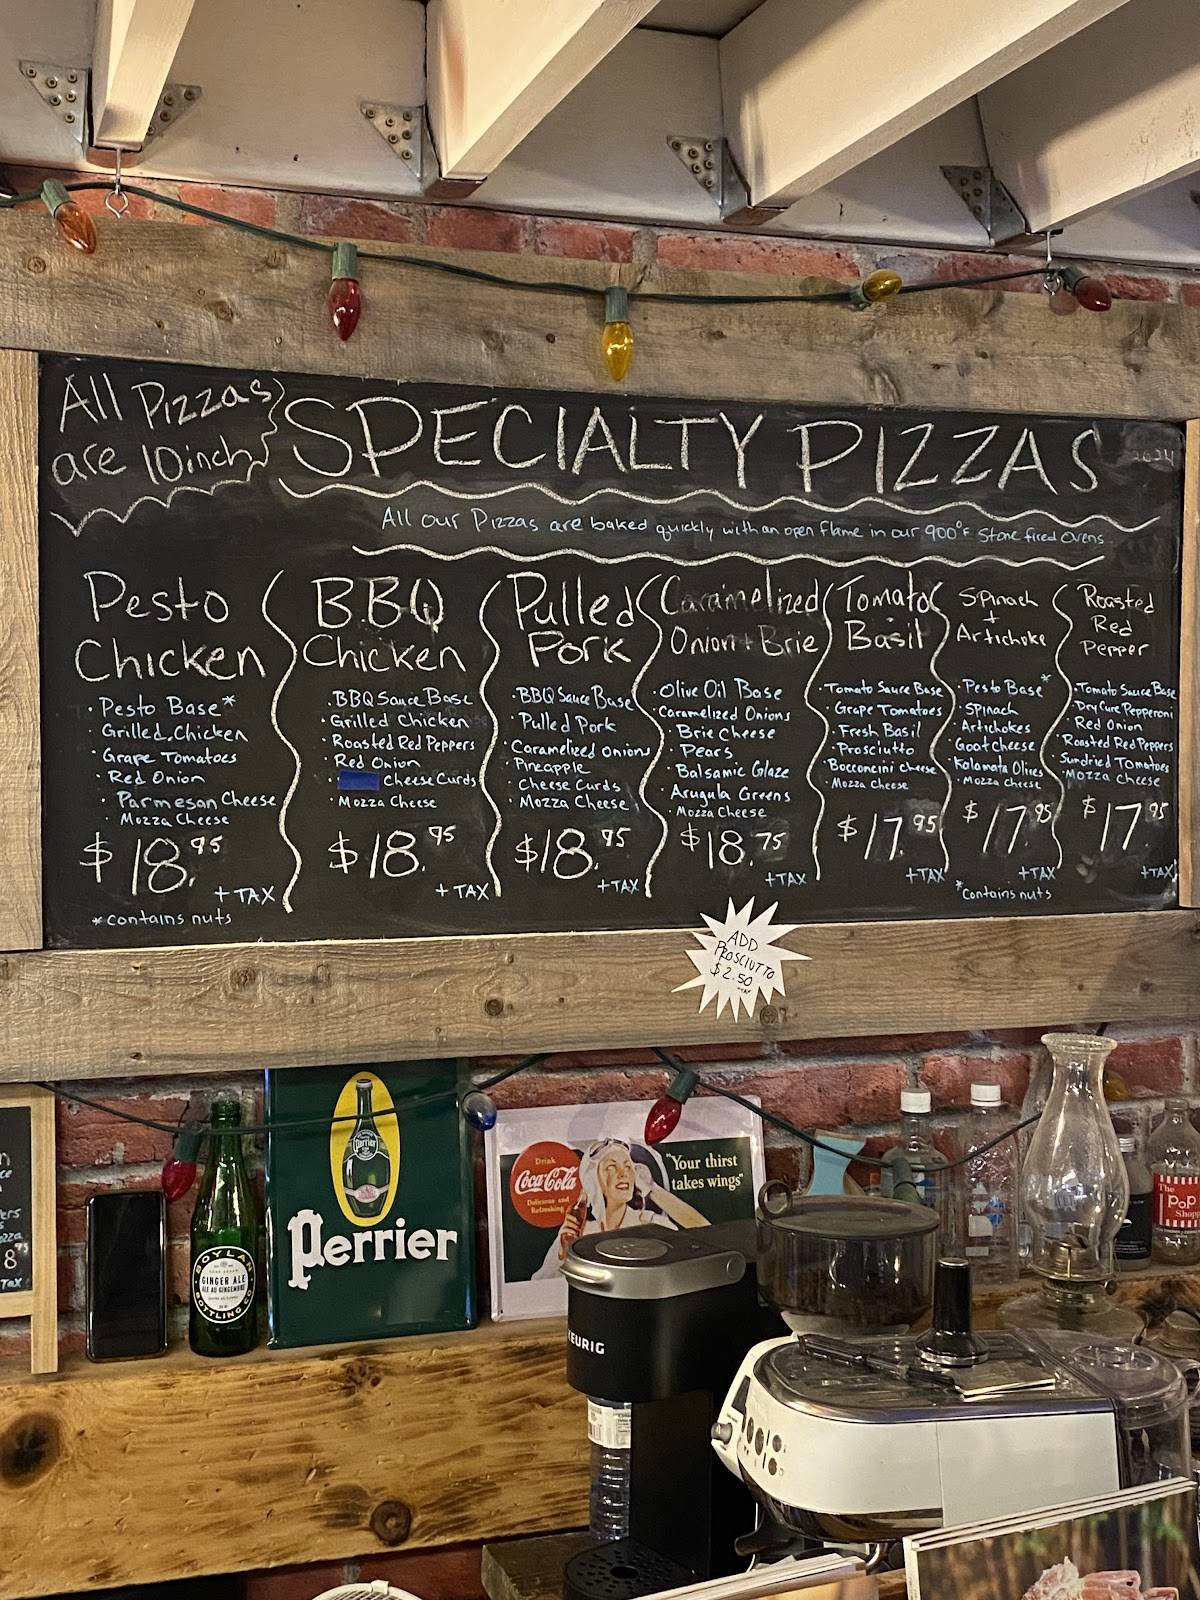 All Pizzas
are 10inch
SPECIALTY PIZZAS
2024
All our Pizzas are baked quickly with an open flame in our 900°F Stone fired Ovens.
Pesto
Chicken
• Pesto Base*
• Grilled Chicken
• Grape Tomatoes
• Red Onion
• Parmesan Cheese
• Mozza Cheese
$18.95
+ TAX
*contains nuts
BBQ
Chicken
• BBQ Sauce Base
• Grilled Chicken
• Roasted Red Peppers
• Red Onion
• Cheese Curds
• Mozza Cheese
$18.95
+ TAX
Pulled
Pork
• BBQ Sauce Base
• Pulled Pork
• Caramelized onions
• Pineapple
• Cheese Curds
• Mozza Cheese
$18.95
+ TAX
Caramelized
Onion + Brie
• Olive Oil Base
• Caramelized Onions
• Brie Cheese
• Pears
• Balsamic Glaze
• Arugula Greens
• Mozza Cheese
$18.75
+ TAX
Tomato
Basil
• Tomato Sauce Base
• Grape Tomatoes
• Fresh Basil
• Prosciutto
• Bocconcini cheese
• Mozza Cheese
$17.95
+ TAX
Spinach
+
Artichoke
• Pesto Base*
• Spinach
• Artichokes
• Goat Cheese
• Kalamata Olives
• Mozza Cheese
$17.95
+ TAX
*contains nuts
Roasted
Red
Pepper
• Tomato Sauce Base
• Dry Cure Pepperoni
• Red Onion
• Roasted Red Peppers
• Sundried Tomatoes
• Mozza Cheese
$17.95
+ TAX
ADD
PROSCIUTTO
$2.50
Perrier
Perrier
BOYLAN
GINGER ALE
ALE AU GINGEMBRE
BOTTLING CO
Drink
Coca-Cola
Delicious and
Refreshing
"Your thirst
takes wings"
KEURIG
The
PoP
Shopp
8.75
TAX